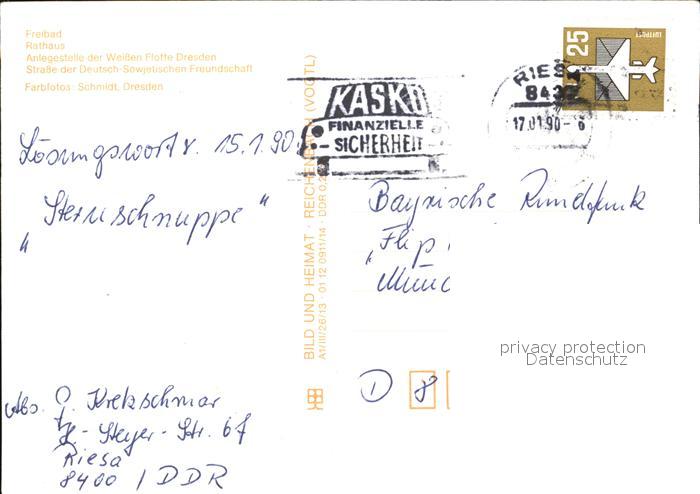 Freibad
Rathaus
Anlegestelle der Weißen Flotte Dresden
Straße der Deutsch-Sowjetischen Freundschaft
Farbfotos: Schmidt, Dresden
Lösungswort v. 15.1.90
„Sternschnuppe“
Abs. Kretzschmar
-Steyer-Str. 67
Riesa
8400 / DDR
BILD UND HEIMAT · REICHENBACH (VOGTL)
A1/III/26/13 · 01 12 0911/14 · DDR
KASKO
FINANZIELLE
SICHERHEIT
RIESA
17.01.90-6
25
LUFTPOST
Bayrische Rundfunk
„Flip
Münc
D 8
privacy protection
Datenschutz